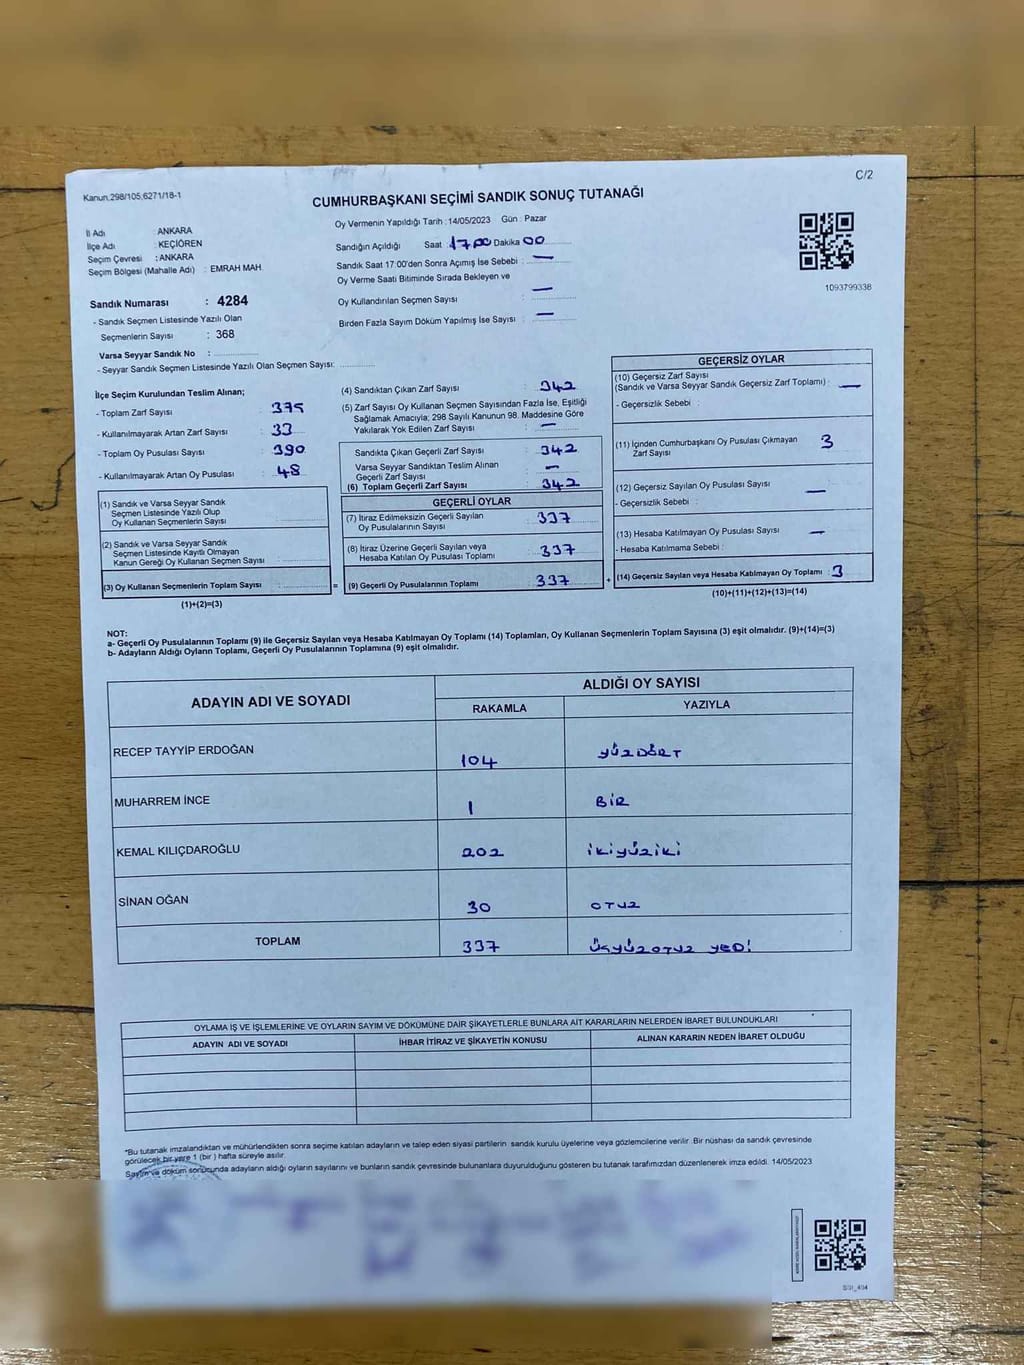 C/2
Kanun.298/105,6271/18-1
CUMHURBAŞKANI SEÇİMİ SANDIK SONUÇ TUTANAĞI
Oy Vermenin Yapıldığı Tarih : 14/05/2023 Gün : Pazar
İl Adı : ANKARA
İlçe Adı : KEÇİÖREN
Seçim Çevresi : ANKARA
Seçim Bölgesi (Mahalle Adı) : EMRAH MAH.
Sandığın Açıldığı Saat : 17 00 Dakika 00
Sandık Saat 17:00'den Sonra Açımış İse Sebebi : —
Oy Verme Saati Bitiminde Sırada Bekleyen ve
Oy Kullandırılan Seçmen Sayısı : —
Birden Fazla Sayım Döküm Yapılmış İse Sayısı : —
1093799338
Sandık Numarası : 4284
- Sandık Seçmen Listesinde Yazılı Olan
Seçmenlerin Sayısı : 368
Varsa Seyyar Sandık No :
- Seyyar Sandık Seçmen Listesinde Yazılı Olan Seçmen Sayısı:
İlçe Seçim Kurulundan Teslim Alınan;
- Toplam Zarf Sayısı : 375
- Kullanılmayarak Artan Zarf Sayısı : 33
- Toplam Oy Pusulası Sayısı : 390
- Kullanılmayarak Artan Oy Pusulası : 48
(1) Sandık ve Varsa Seyyar Sandık
Seçmen Listesinde Yazılı Olup
Oy Kullanan Seçmenlerin Sayısı :
(2) Sandık ve Varsa Seyyar Sandık
Seçmen Listesinde Kayıtlı Olmayan
Kanun Gereği Oy Kullanan Seçmen Sayısı :
(3) Oy Kullanan Seçmenlerin Toplam Sayısı :
(1)+(2)=(3)
(4) Sandıktan Çıkan Zarf Sayısı : 342
(5) Zarf Sayısı Oy Kullanan Seçmen Sayısından Fazla İse, Eşitliği
Sağlamak Amacıyla; 298 Sayılı Kanunun 98. Maddesine Göre
Yakılarak Yok Edilen Zarf Sayısı : —
Sandıkta Çıkan Geçerli Zarf Sayısı : 342
Varsa Seyyar Sandıktan Teslim Alınan
Geçerli Zarf Sayısı : —
(6) Toplam Geçerli Zarf Sayısı : 342
GEÇERLİ OYLAR
(7) İtiraz Edilmeksizin Geçerli Sayılan
Oy Pusulalarının Sayısı : 337
(8) İtiraz Üzerine Geçerli Sayılan veya
Hesaba Katılan Oy Pusulası Toplamı : 337
= (9) Geçerli Oy Pusulalarının Toplamı : 337 +
GEÇERSİZ OYLAR
(10) Geçersiz Zarf Sayısı
(Sandık ve Varsa Seyyar Sandık Geçersiz Zarf Toplamı) : —
- Geçersizlik Sebebi :
(11) İçinden Cumhurbaşkanı Oy Pusulası Çıkmayan
Zarf Sayısı : 3
(12) Geçersiz Sayılan Oy Pusulası Sayısı : —
- Geçersizlik Sebebi :
(13) Hesaba Katılmayan Oy Pusulası Sayısı : —
- Hesaba Katılmama Sebebi :
(14) Geçersiz Sayılan veya Hesaba Katılmayan Oy Toplamı : 3
(10)+(11)+(12)+(13)=(14)
NOT:
a- Geçerli Oy Pusulalarının Toplamı (9) ile Geçersiz Sayılan veya Hesaba Katılmayan Oy Toplamı (14) Toplamları, Oy Kullanan Seçmenlerin Toplam Sayısına (3) eşit olmalıdır. (9)+(14)=(3)
b- Adayların Aldığı Oyların Toplamı, Geçerli Oy Pusulalarının Toplamına (9) eşit olmalıdır.
ADAYIN ADI VE SOYADI ALDIĞI OY SAYISI
RAKAMLA YAZIYLA
RECEP TAYYİP ERDOĞAN 104 YÜZDÖRT
MUHARREM İNCE 1 BİR
KEMAL KILIÇDAROĞLU 202 İKİYÜZİKİ
SİNAN OĞAN 30 OTUZ
TOPLAM 337 ÜÇYÜZOTUZ YEDİ
OYLAMA İŞ VE İŞLEMLERİNE VE OYLARIN SAYIM VE DÖKÜMÜNE DAİR ŞİKAYETLERLE BUNLARA AİT KARARLARIN NELERDEN İBARET BULUNDUKLARI
ADAYIN ADI VE SOYADI İHBAR İTİRAZ VE ŞİKAYETİN KONUSU ALINAN KARARIN NEDEN İBARET OLDUĞU
*Bu tutanak imzalandıktan ve mühürlendikten sonra seçime katılan adayların ve talep eden siyasi partilerin sandık kurulu üyelerine veya gözlemcilerine verilir .Bir nüshası da sandık çevresinde
görülecek bir yere 1 (bir ) hafta süreyle asılır.
Sayım ve döküm sonucunda adayların aldığı oyların sayılarını ve bunların sandık çevresinde bulunanlara duyurulduğunu gösteren bu tutanak tarafımızdan düzenlenerek imza edildi. 14/05/2023